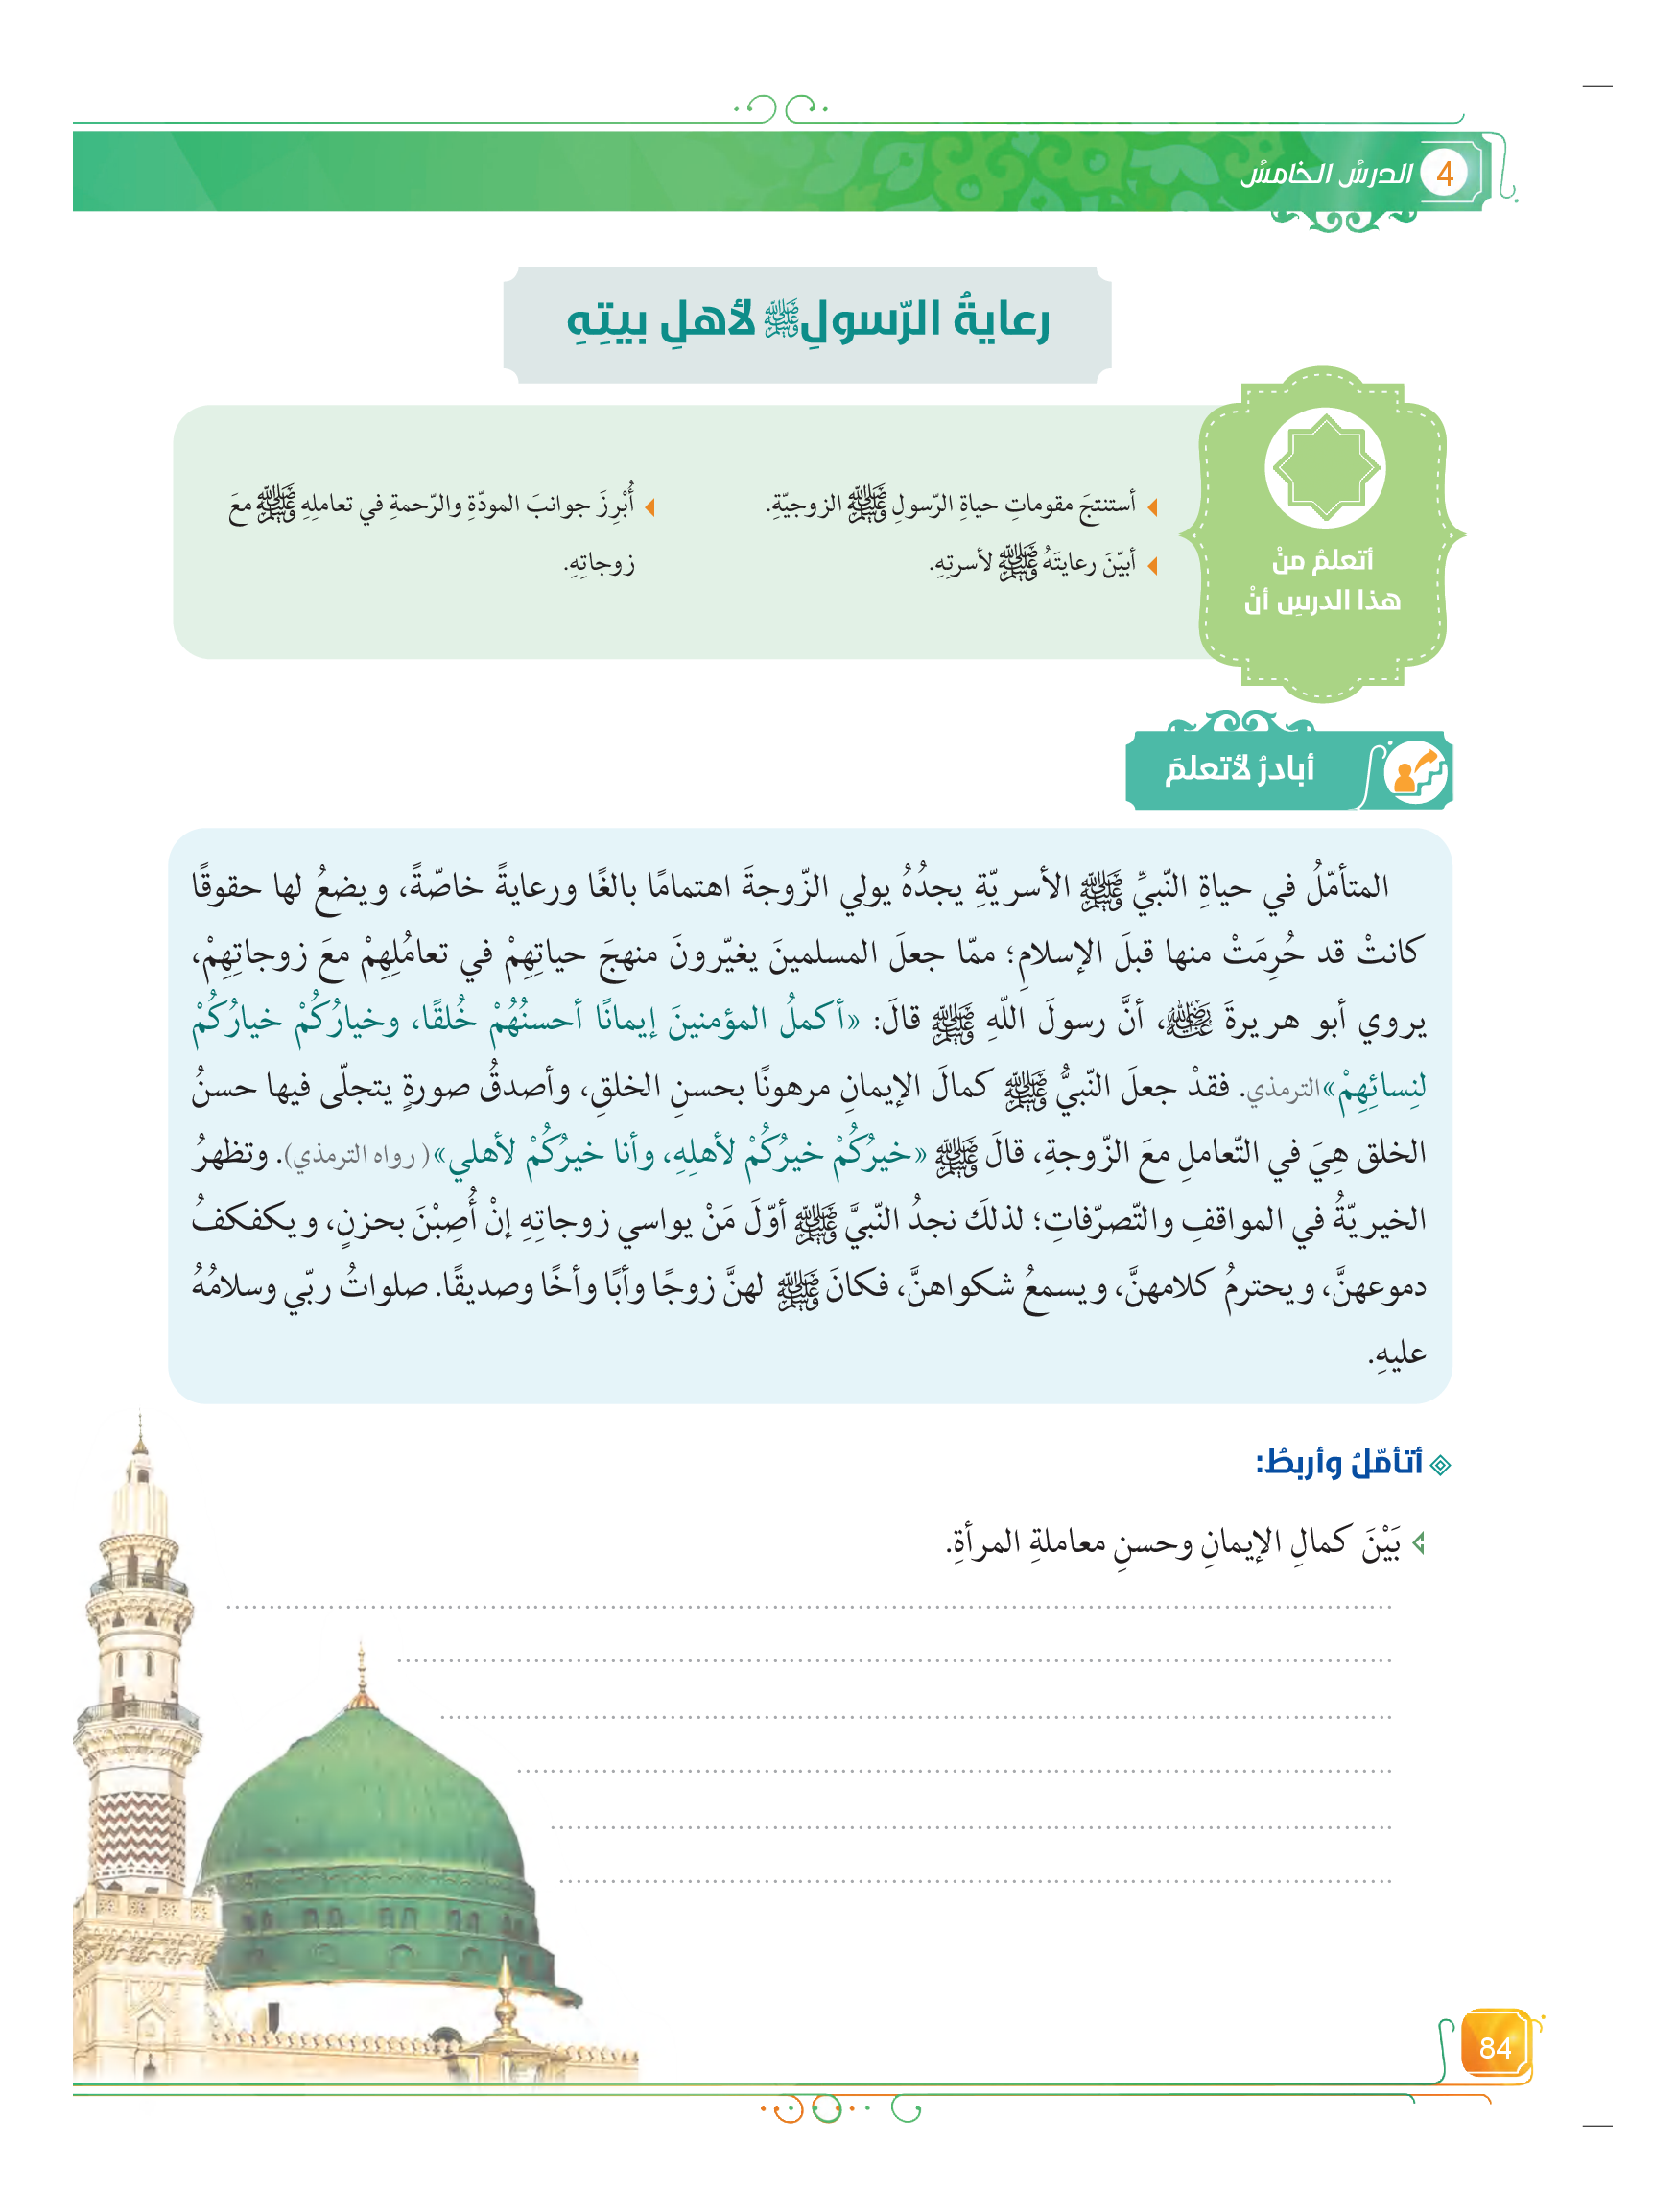 4 الدرسُ الخامسُ
رعايةُ الرّسولِ ﷺ لأهلِ بيتِهِ
أتعلمُ منْ
هذا الدرسِ أنْ
أستنتجَ مقوماتِ حياةِ الرّسولِ ﷺ الزوجيّةِ.
أبيّنَ رعايتَهُ ﷺ لأسرتِهِ.
أُبْرِزَ جوانبَ المودّةِ والرّحمةِ في تعاملِهِ ﷺ معَ
زوجاتِهِ.
أبادرُ لأتعلمَ
المتأمّلُ في حياةِ النّبيِّ ﷺ الأسريّةِ يجدُهُ يولي الزّوجةَ اهتمامًا بالغًا ورعايةً خاصّةً، ويضعُ لها حقوقًا
كانتْ قد حُرِمَتْ منها قبلَ الإسلامِ؛ ممّا جعلَ المسلمينَ يغيّرونَ منهجَ حياتِهِمْ في تعامُلِهِمْ معَ زوجاتِهِمْ،
يروي أبو هريرةَ رضي الله عنه، أنَّ رسولَ اللّهِ ﷺ قالَ: «أكملُ المؤمنينَ إيمانًا أحسنُهُمْ خُلقًا، وخيارُكُمْ خيارُكُمْ
لنِسائِهِمْ»الترمذي. فقدْ جعلَ النّبيُّ ﷺ كمالَ الإيمانِ مرهونًا بحسنِ الخلقِ، وأصدقُ صورةٍ يتجلّى فيها حسنُ
الخلق هِيَ في التّعاملِ معَ الزّوجةِ، قالَ ﷺ «خيرُكُمْ خيرُكُمْ لأهلِهِ، وأنا خيرُكُمْ لأهلي»( رواه الترمذي). وتظهرُ
الخيريّةُ في المواقفِ والتّصرّفاتِ؛ لذلكَ نجدُ النّبيَّ ﷺ أوّلَ مَنْ يواسي زوجاتِهِ إنْ أُصِبْنَ بحزنٍ، ويكفكفُ
دموعهنَّ، ويحترمُ كلامهنَّ، ويسمعُ شكواهنَّ، فكانَ ﷺ لهنَّ زوجًا وأبًا وأخًا وصديقًا. صلواتُ ربّي وسلامُهُ
عليهِ.
أتأمّلُ وأربطُ:
بَيْنَ كمالِ الإيمانِ وحسنِ معاملةِ المرأةِ.
84